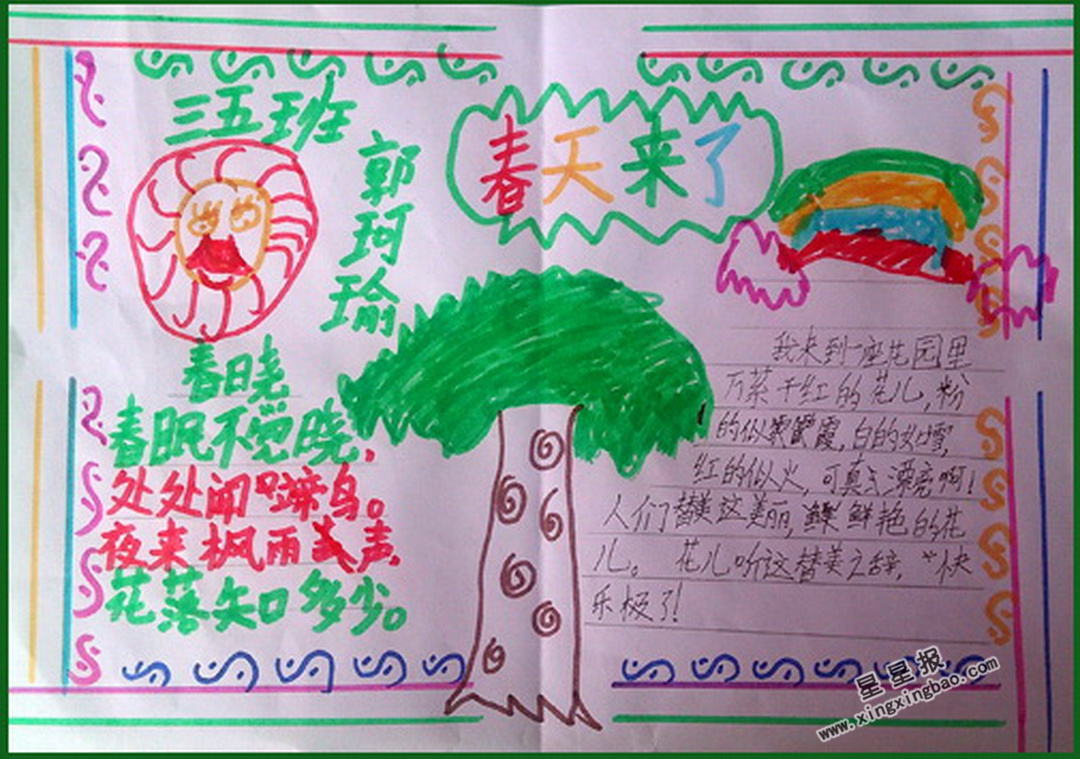 三五班
郭珂瑜
春天来了
春晓
春眠不觉晓,
处处闻啼鸟。
夜来枫雨声,
花落知多少。
我来到一座花园里
万紫千红的花儿,粉
的似霞,白的如雪,
红的似火,可真漂亮啊!
人们替美这美丽,鲜艳的花
儿。花儿听这替美之辞,快
乐极了!
星星报
www.xingxingbao.com